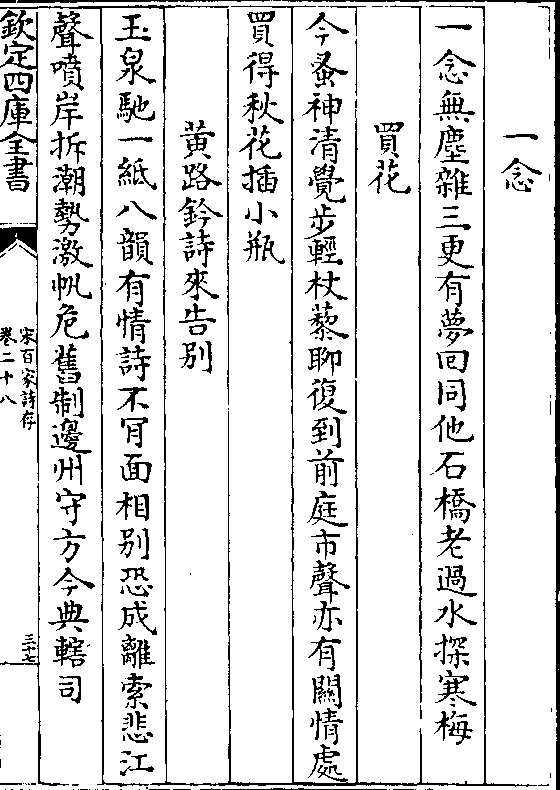 一念
一念無塵雜三更有夢回同他石橋老過水探寒梅
買花
今蚤神清覺步輕杖藜聊復到前庭市聲亦有關情處
買得秋花插小瓶
黄路鈐詩來告别
玉泉馳一紙八韻有情詩不肎面相别恐成離索悲江
聲噴岸拆潮勢激帆危舊制邊州守方今典轄司
欽定四庫全書
宋百家詩存
卷二十八
三十七